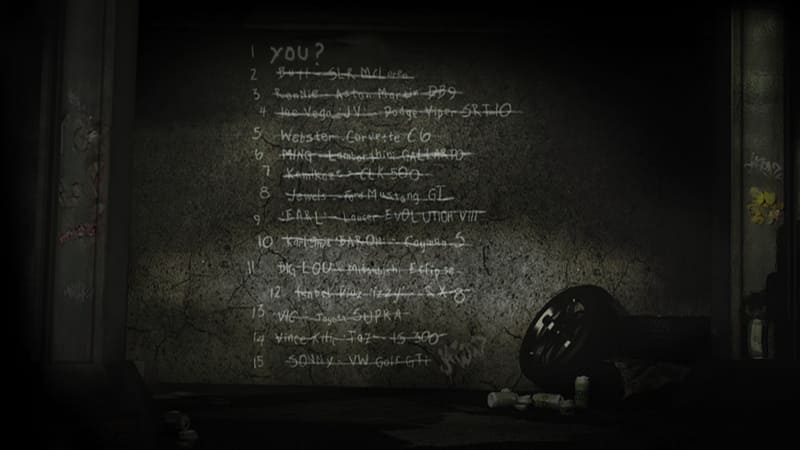 1 YOU?
2 Bull - SLR McLaren
3 Ronnie - Aston Martin DB9
4 Joe Vega JV - Dodge Viper SRT10
5 Webster Corvette C6
6 MING - Lamborghini GALLARDO
7 Kamikaze - CLK 500
8 Jewels - Ford Mustang GT
9 EARL - Lancer EVOLUTION VIII
10 BARON - Cayman S
11 Big LOU - Mitsubishi Eclipse
12 Isabel Diaz Izzy - RX-8
13 VIC - Toyota SUPRA
14 Vince Kilic Taz - IS 300
15 SONNY - VW Golf GTI